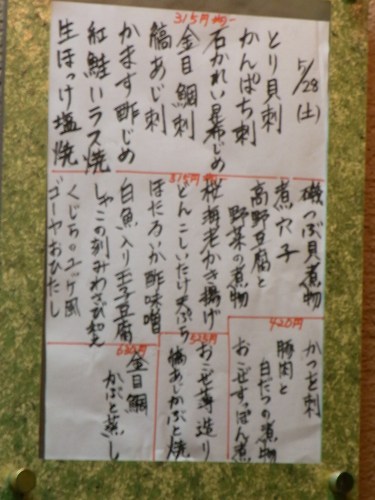 5/28(土)
315円均一
とり貝刺
かんぱち刺
石かれい昆布じめ
金目鯛刺
縞あじ刺
かます酢じめ
紅鮭ハラス焼
生ほっけ塩焼
315円均一
磯つぶ貝煮物
煮穴子
高野豆腐と
野菜の煮物
桜海老かき揚げ
どんこしいたけ天ぷら
ほたるいか酢味噌
白魚入り玉子豆腐
しゃこの刻みわさび和え
くじらのユッケ風
ゴーヤおひたし
420円
かつを刺
豚肉と
白だつの煮物
525円
おこぜすっぽん煮
おこぜ薄造り
縞あじかぶと焼
630円
金目鯛
かぶと蒸し